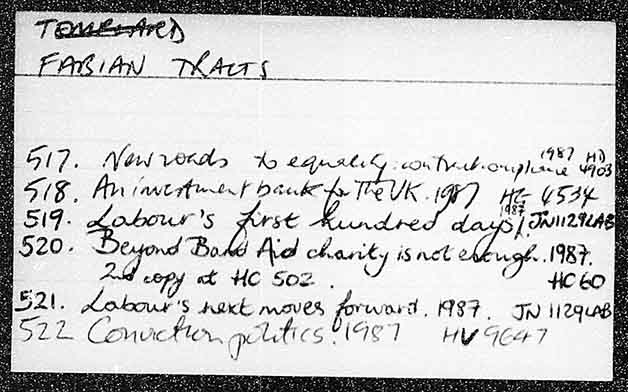 FABIAN TRACTS
517. New roads to equality: contract compliance 1987 HD 4903
518. An investment bank for The UK. 1987 HG 4534
519. Labour's first hundred days. 1987 JN1129LAB
520. Beyond Band Aid charity is not enough. 1987.
2nd copy at HC 502. HC 60
521. Labour's next moves forward. 1987. JN 1129LAB
522 Conviction politics. 1987 HV 9647